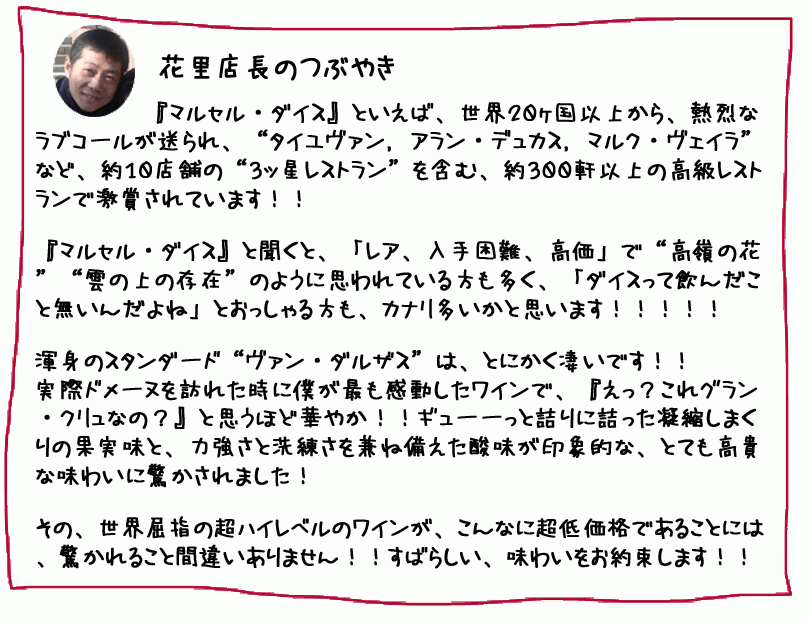 花里店長のつぶやき
『マルセル・ダイス』といえば、世界20ヶ国以上から、熱烈な
ラブコールが送られ、“タイユヴァン, アラン・デュカス, マルク・ヴェイラ”
など、約10店舗の“3ッ星レストラン”を含む、約300軒以上の高級レスト
ランで激賞されています！！
『マルセル・ダイス』と聞くと、「レア、入手困難、高価」で“高嶺の花
”“雲の上の存在”のように思われている方も多く、「ダイスって飲んだこ
と無いんだよね」とおっしゃる方も、カナリ多いかと思います！！！！！
渾身のスタンダード“ヴァン・ダルザス”は、とにかく凄いです！！
実際ドメーヌを訪れた時に僕が最も感動したワインで、『えっ？これグラン
・クリュなの？』と思うほど華やか！！ギューーっと詰りに詰った凝縮しまく
りの果実味と、力強さと洗練さを兼ね備えた酸味が印象的な、とても高貴
な味わいに驚かされました！
その、世界屈指の超ハイレベルのワインが、こんなに超低価格であることには
、驚かれること間違いありません！！すばらしい、味わいをお約束します！！